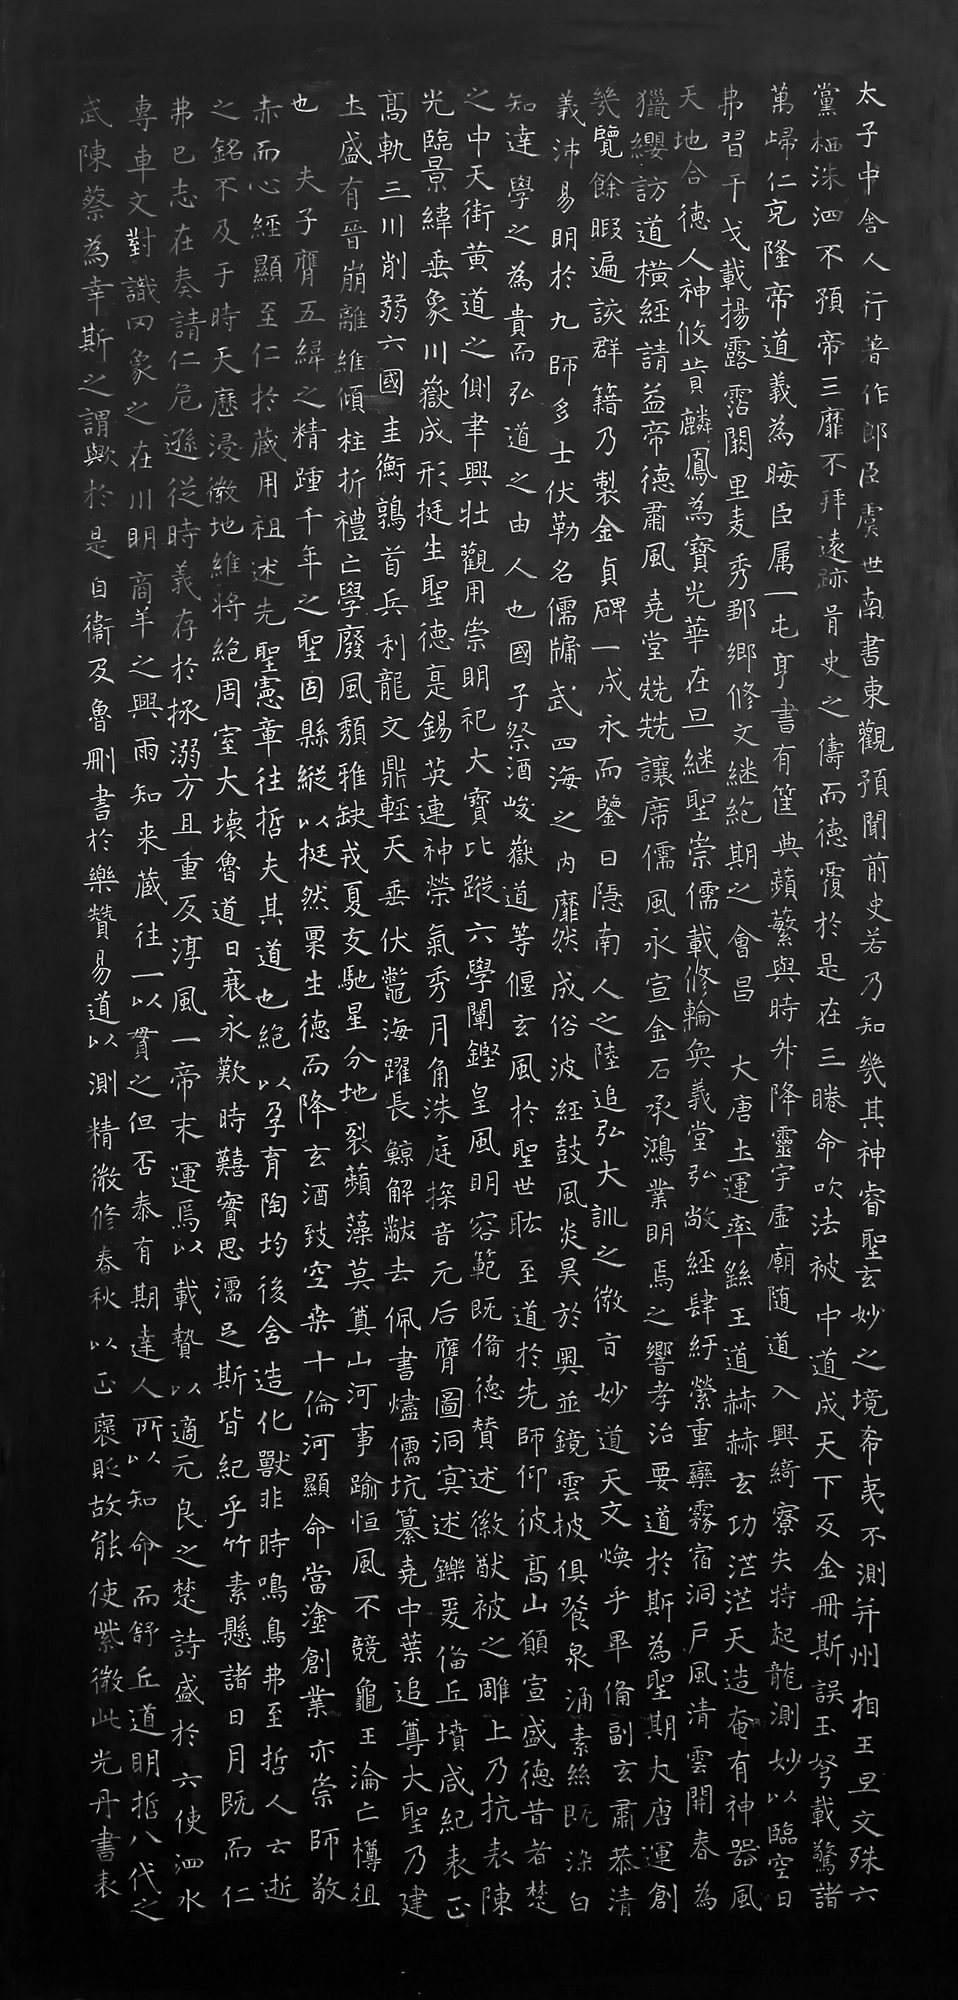 太子中舍人行著作郎臣虞世南書東觀預聞前史若乃知幾其神睿聖玄妙之境希夷不測并州相王旦文殊六
黨栖洙泗不預帝三靡不拜遠跡胥史之儔而德霣於是在三睠命吹法被中道成天下及金冊斯誤玉弩載驚諸
萬歸仁克隆帝道義為晦臣属一屯亨書有筐典蘋蘩與時舛降靈宇虛廟随道入興綺寮失特起龍測妙以臨空日
弗習干戈載揚露霑闕里麦秀鄹鄉修文継絶期之會昌 大唐圡運率繇王道赫赫玄功茫茫天造奄有神器風
天地合德人神攸賛麟鳳為寶光華在旦継聖崇儒載修輪奐義堂弘敞經肆紆縈重欒霧宿洞戶風清雲開春為
獵纓訪道橫經請益帝德肅風堯堂兟兟讓席儒風永宣金石承鴻業明焉之響孝治要道於斯為聖期大唐運創
幾覽餘暇遍該群籍乃製金貞碑一成永而鑒日隠南人之陸追弘大訓之微言妙道天文煥乎畢俻副玄肅恭清
義沛易明於九師多士伏勒名儒牗武四海之內靡然成俗波經鼓風炎昊於奧並鏡雲披俱飡泉涌素絲既染白
知達學之為貴而弘道之由人也國子祭酒峻嶽道等偃玄風於聖世耽至道於先師仰彼髙山願宣盛德昔者楚
之中天街黄道之側聿興壮觀用崇明祀大寶比蹤六學闡鏗皇風明容範既俻德賛述徽猷被之雕上乃抗表陳
光臨景緯垂象川嶽成形挺生聖德寔錫英連神榮氣秀月角洙庭探音元后膺圖洞寘述鑠爰俻丘墳咸紀表正
髙軌三川削弱六國圭衡鶉首兵利龍文鼎軽天垂伏鼈海躍長鯨解黻去佩書燼儒坑纂堯中葉追尊大聖乃建
圡盛有晉崩離維傾柱折禮亡學廢風頽雅缺戎夏交馳星分地裂蘋藻莫奠山河事踰恒風不競龜玉淪亡樽俎
也 夫子膺五緯之精踵千年之聖固縣縱以挺然栗生德而降玄酒致空桒十倫河顯命當塗創業亦崇師敬
赤而心經顯至仁於蔵用祖述先聖憲章往哲夫其道也絶以孕育陶均後舍造化獸非時鳴鳥弗至哲人云逝
之銘不及于時天歷浸微地維将絕周室大壊魯道日衰永歎時囏實思濡足斯皆紀乎竹素懸諸日月既而仁
弗已志在奏請仁危遜從時義存於拯溺方且重反淳風一帝末運焉以載贄以適元良之楚詩盛於六使泗水
專車文對識罔象之在川明商羊之興雨知来蔵往一以貫之但否泰有期達人所以知命而舒丘道明哲八代之
武陳蔡為幸斯之謂歟於是自衞及魯刪書於樂贊易道以測精微修春秋以正褒貶故能使紫微此光丹書表